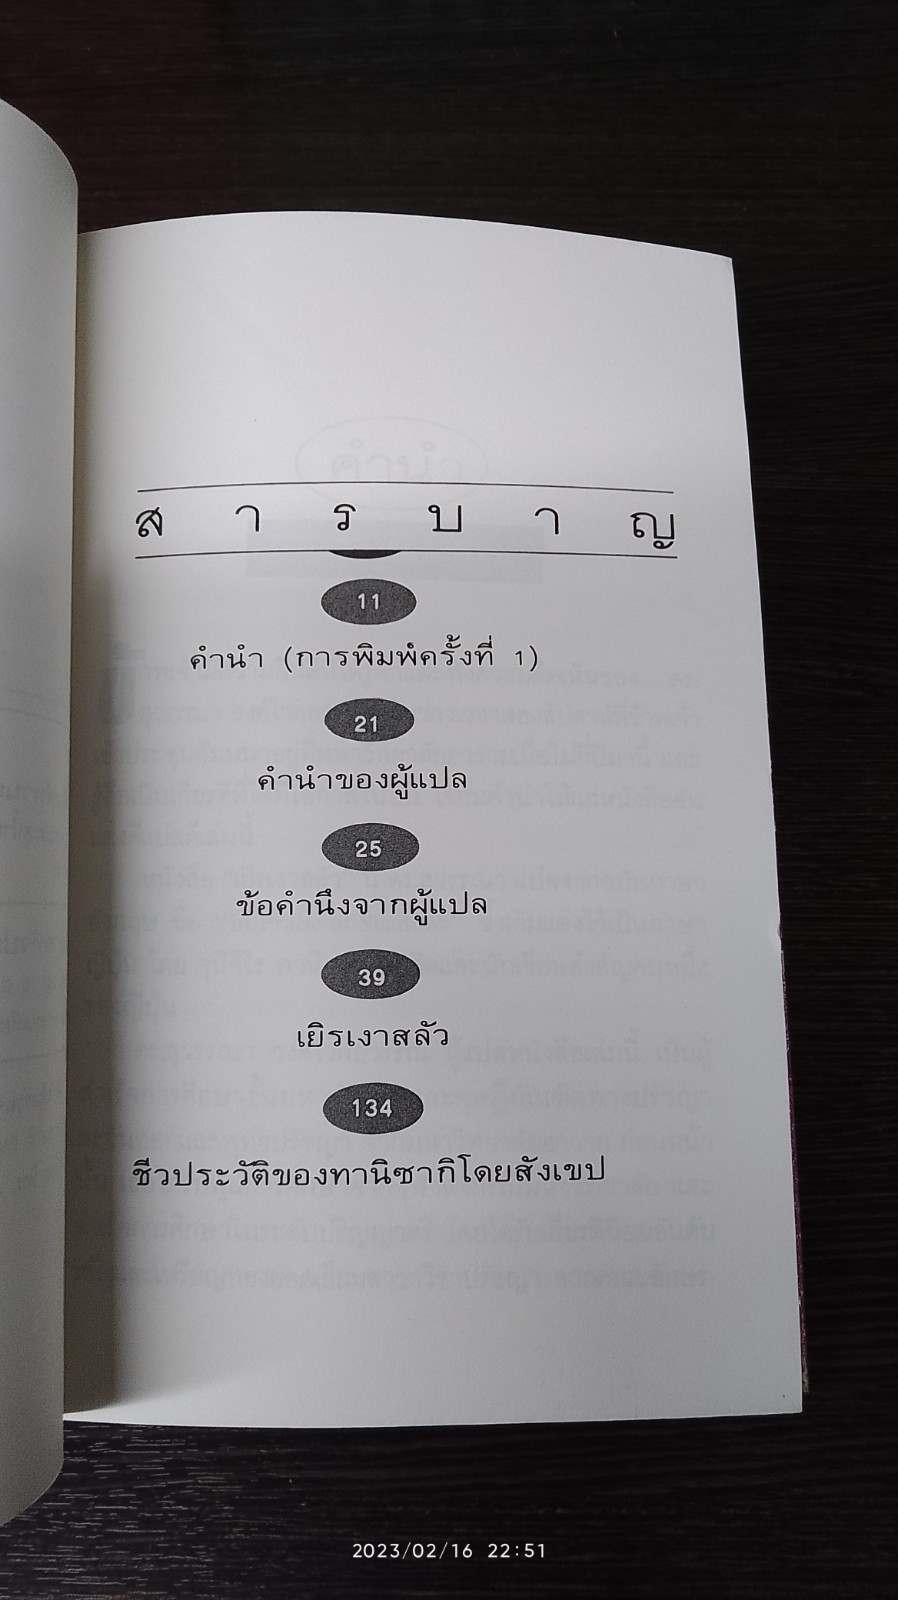 ส า ร บ า ญ
11
คำนำ (การพิมพ์ครั้งที่ 1)
21
คำนำของผู้แปล
25
ข้อคำนึงจากผู้แปล
39
เยิรเงาสลัว
134
ชีวประวัติของทานิซากิโดยสังเขป
2023/02/16 22:51